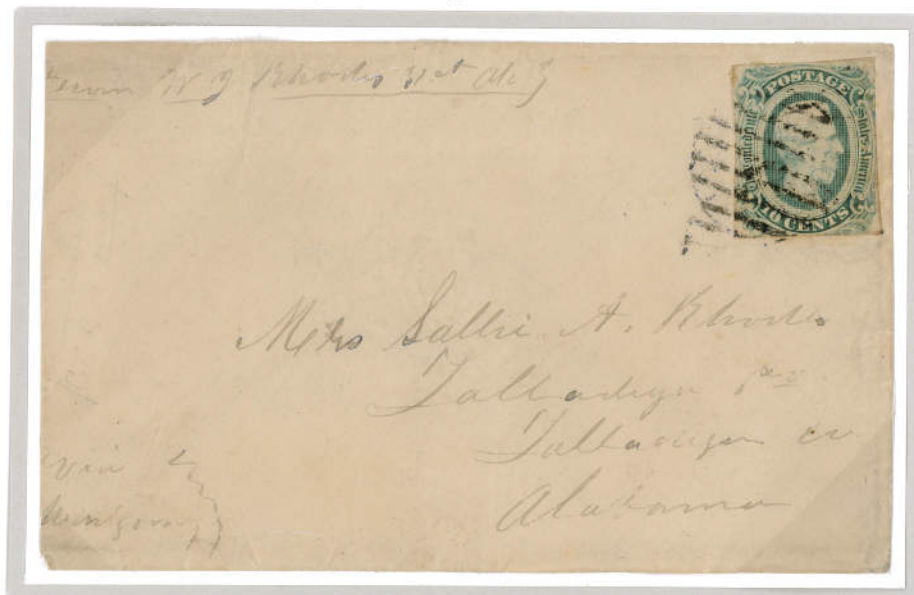 from W J Rhodes 31st Ala
POSTAGE
Confederate States of America
10 CENTS
Mrs Sallie A. Rhodes
Talladega
Talladega co
Alabama
via
Montgomery